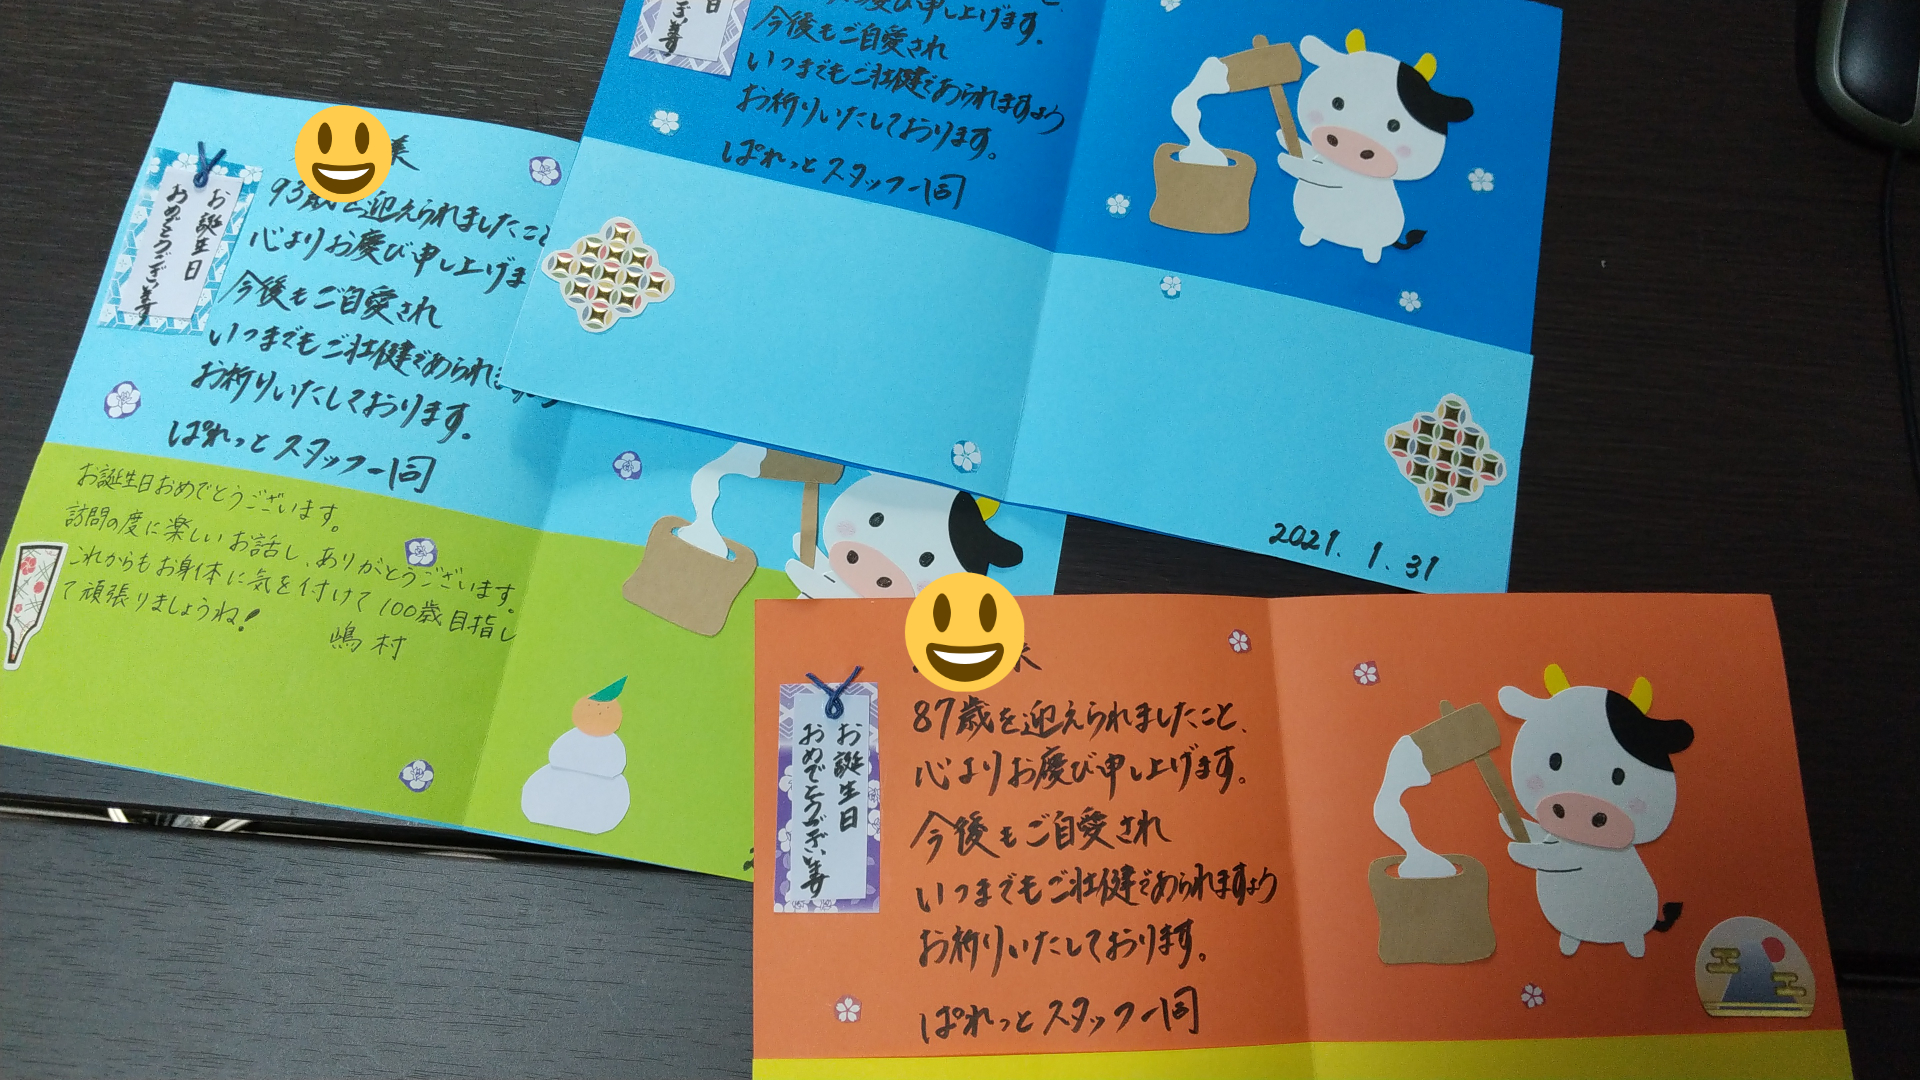 美
93歳を迎えられましたこと
心よりお慶び申し上げま
今後もご自愛され
いつまでもご壮健であられま
お祈りいたしております。
ぱれっとスタッフ一同
お誕生日
おめでとうござい毎
お誕生日おめでとうございます。
訪問の度に楽しいお話し、ありがとうございます。
これからもお身体に気を付けて100歳目指し
て頑張りましょうね!
嶋村
日
ござい毎
慶び申し上げます。
今後もご自愛され
いつまでもご壮健であられますよう
お祈りいたしております。
ぱれっとスタッフ一同
2021.1.31
お誕生日
おめでとうござい毎
87歳を迎えられましたこと、
心よりお慶び申し上げます。
今後もご自愛され
いつまでもご壮健であられますよう
お祈りいたしております。
ぱれっとスタッフ一同